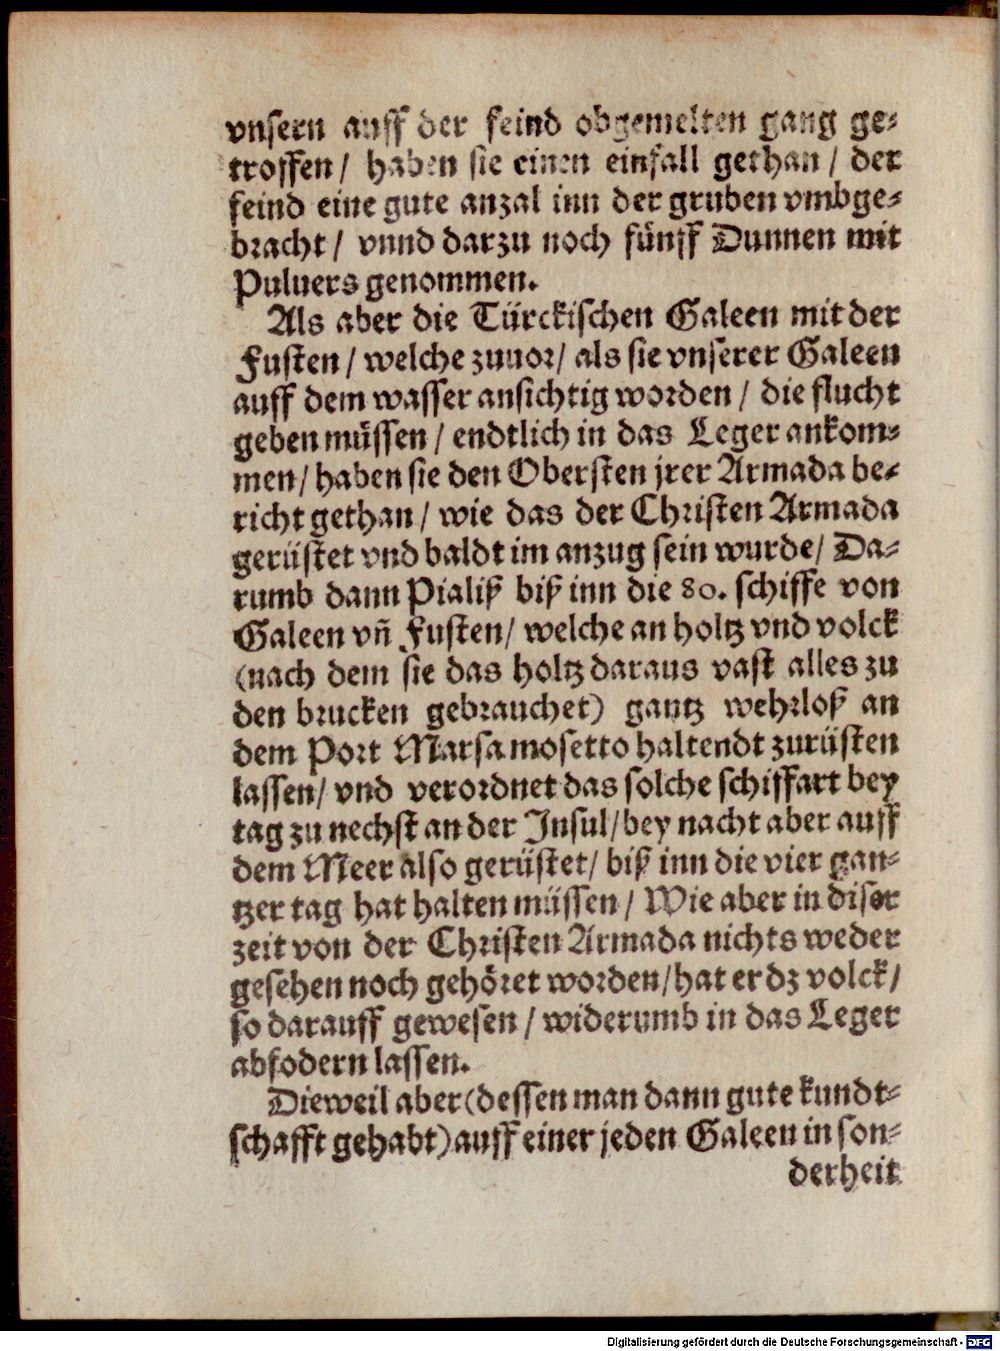 vnsern auff der feind obgemelten gang ge⸗
troffen / haben sie einen einfall gethan / der
feind eine gute anzal inn der gruben vmbge⸗
bracht / vnnd darzu noch fünff Dunnen mit
Puluers genommen.
Als aber die Türckischen Galeen mit der
Fusten / welche zuuor / als sie vnserer Galeen
auff dem wasser ansichtig worden / die flucht
geben müssen / endtlich in das Leger ankom⸗
men / haben sie den Obersten jrer Armada be⸗
richt gethan / wie das der Christen Armada
gerüstet vnd baldt im anzug sein wurde / Da⸗
rumb dann Pialiß biß inn die 80. schiffe von
Galeen vñ Fusten / welche an holtz vnd volck
(nach dem sie das holtz daraus vast alles zu
den brucken gebrauchet) gantz wehrloß an
dem Port Marsa mosetto haltendt zurüsten
lassen / vnd verordnet das solche schiffart bey
tag zu nechst an der Insul / bey nacht aber auff
dem Meer also gerüstet / biß inn die vier gan⸗
tzer tag hat halten müssen / Wie aber in diser
zeit von der Christen Armada nichts weder
gesehen noch gehöret worden / hat er dz volck /
so darauff gewesen / widerumb in das Leger
abfodern lassen.
Dieweil aber (dessen man dann gute kundt⸗
schafft gehabt) auff einer jeden Galeen in son⸗
derheit
Digitalisierung gefördert durch die Deutsche Forschungsgemeinschaft - DFG